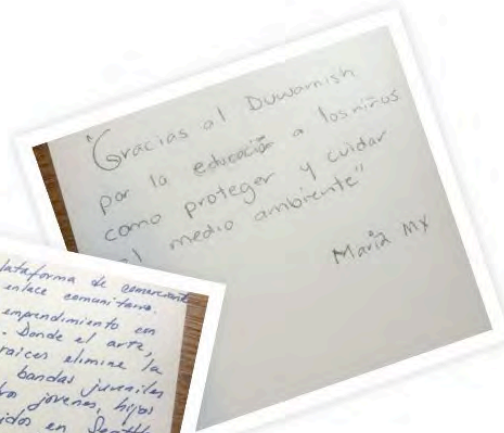 "Gracias al Duwamish
por la educación a los niños
como proteger y cuidar
el medio ambiente"
María MX
plataforma de comerciante
enlace comunitario.
emprendimiento en
. Donde el arte,
raices elimine la
bandas juveniles
jovenes, hijos
en Seattle